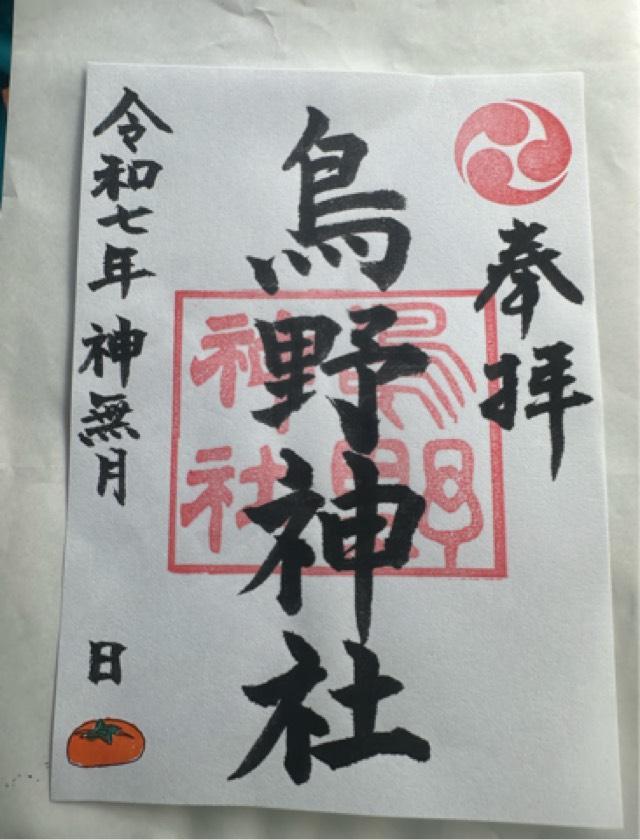 奉拝
鳥野神社
鳥野
神社
令和七年 神無月
日